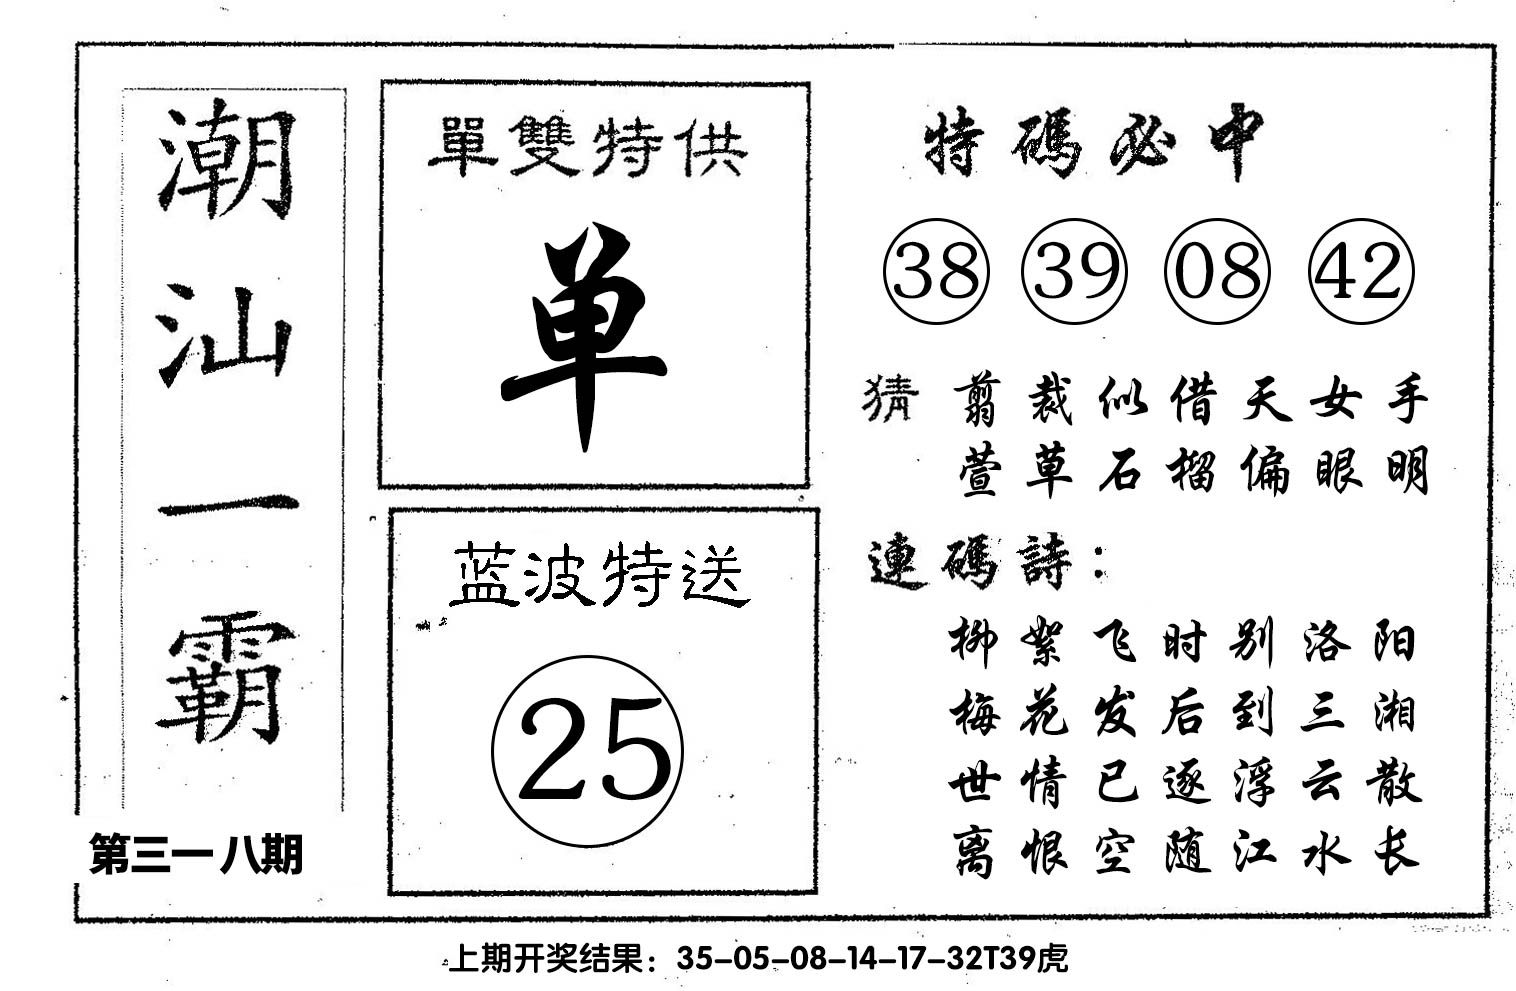 潮汕一霸
第三一八期
單雙特供
单
蓝波特送
25
特碼必中
38 39 08 42
猜 剪裁似借天女手
萱草石榴偏眼明
連碼詩：
柳絮飞时别洛阳
梅花发后到三湘
世情已逐浮云散
离恨空随江水长
上期开奖结果：35-05-08-14-17-32T39虎